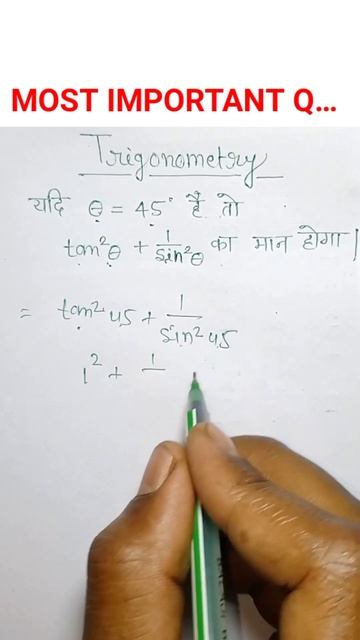 MOST IMPORTANT Q...
Trigonometry
यदि θ = 45° है तो
tan²θ + 1/sin²θ का मान होगा।
= tan² 45 + 1/sin² 45
1² + 1/